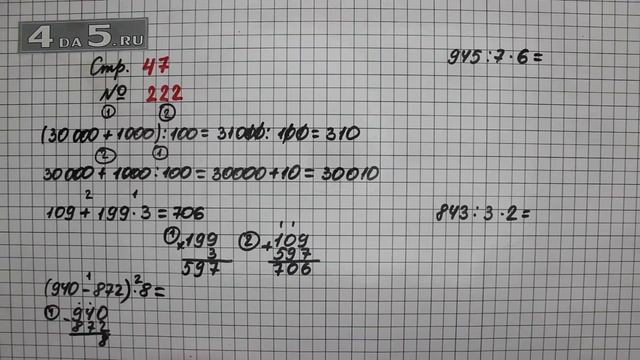 4 DA 5.RU
Стр. 47
№ 222
1 2
(30 000 + 1000) : 100 = 31000 : 100 = 310
2 1
30 000 + 1000 : 100 = 30000 + 10 = 30010
2 1
109 + 199 · 3 = 706
1 × 199
3
597
2 + 109
597
706
1 2
(940 − 872) · 8 =
1 − 940
872
8
945 : 7 · 6 =
843 : 3 · 2 =